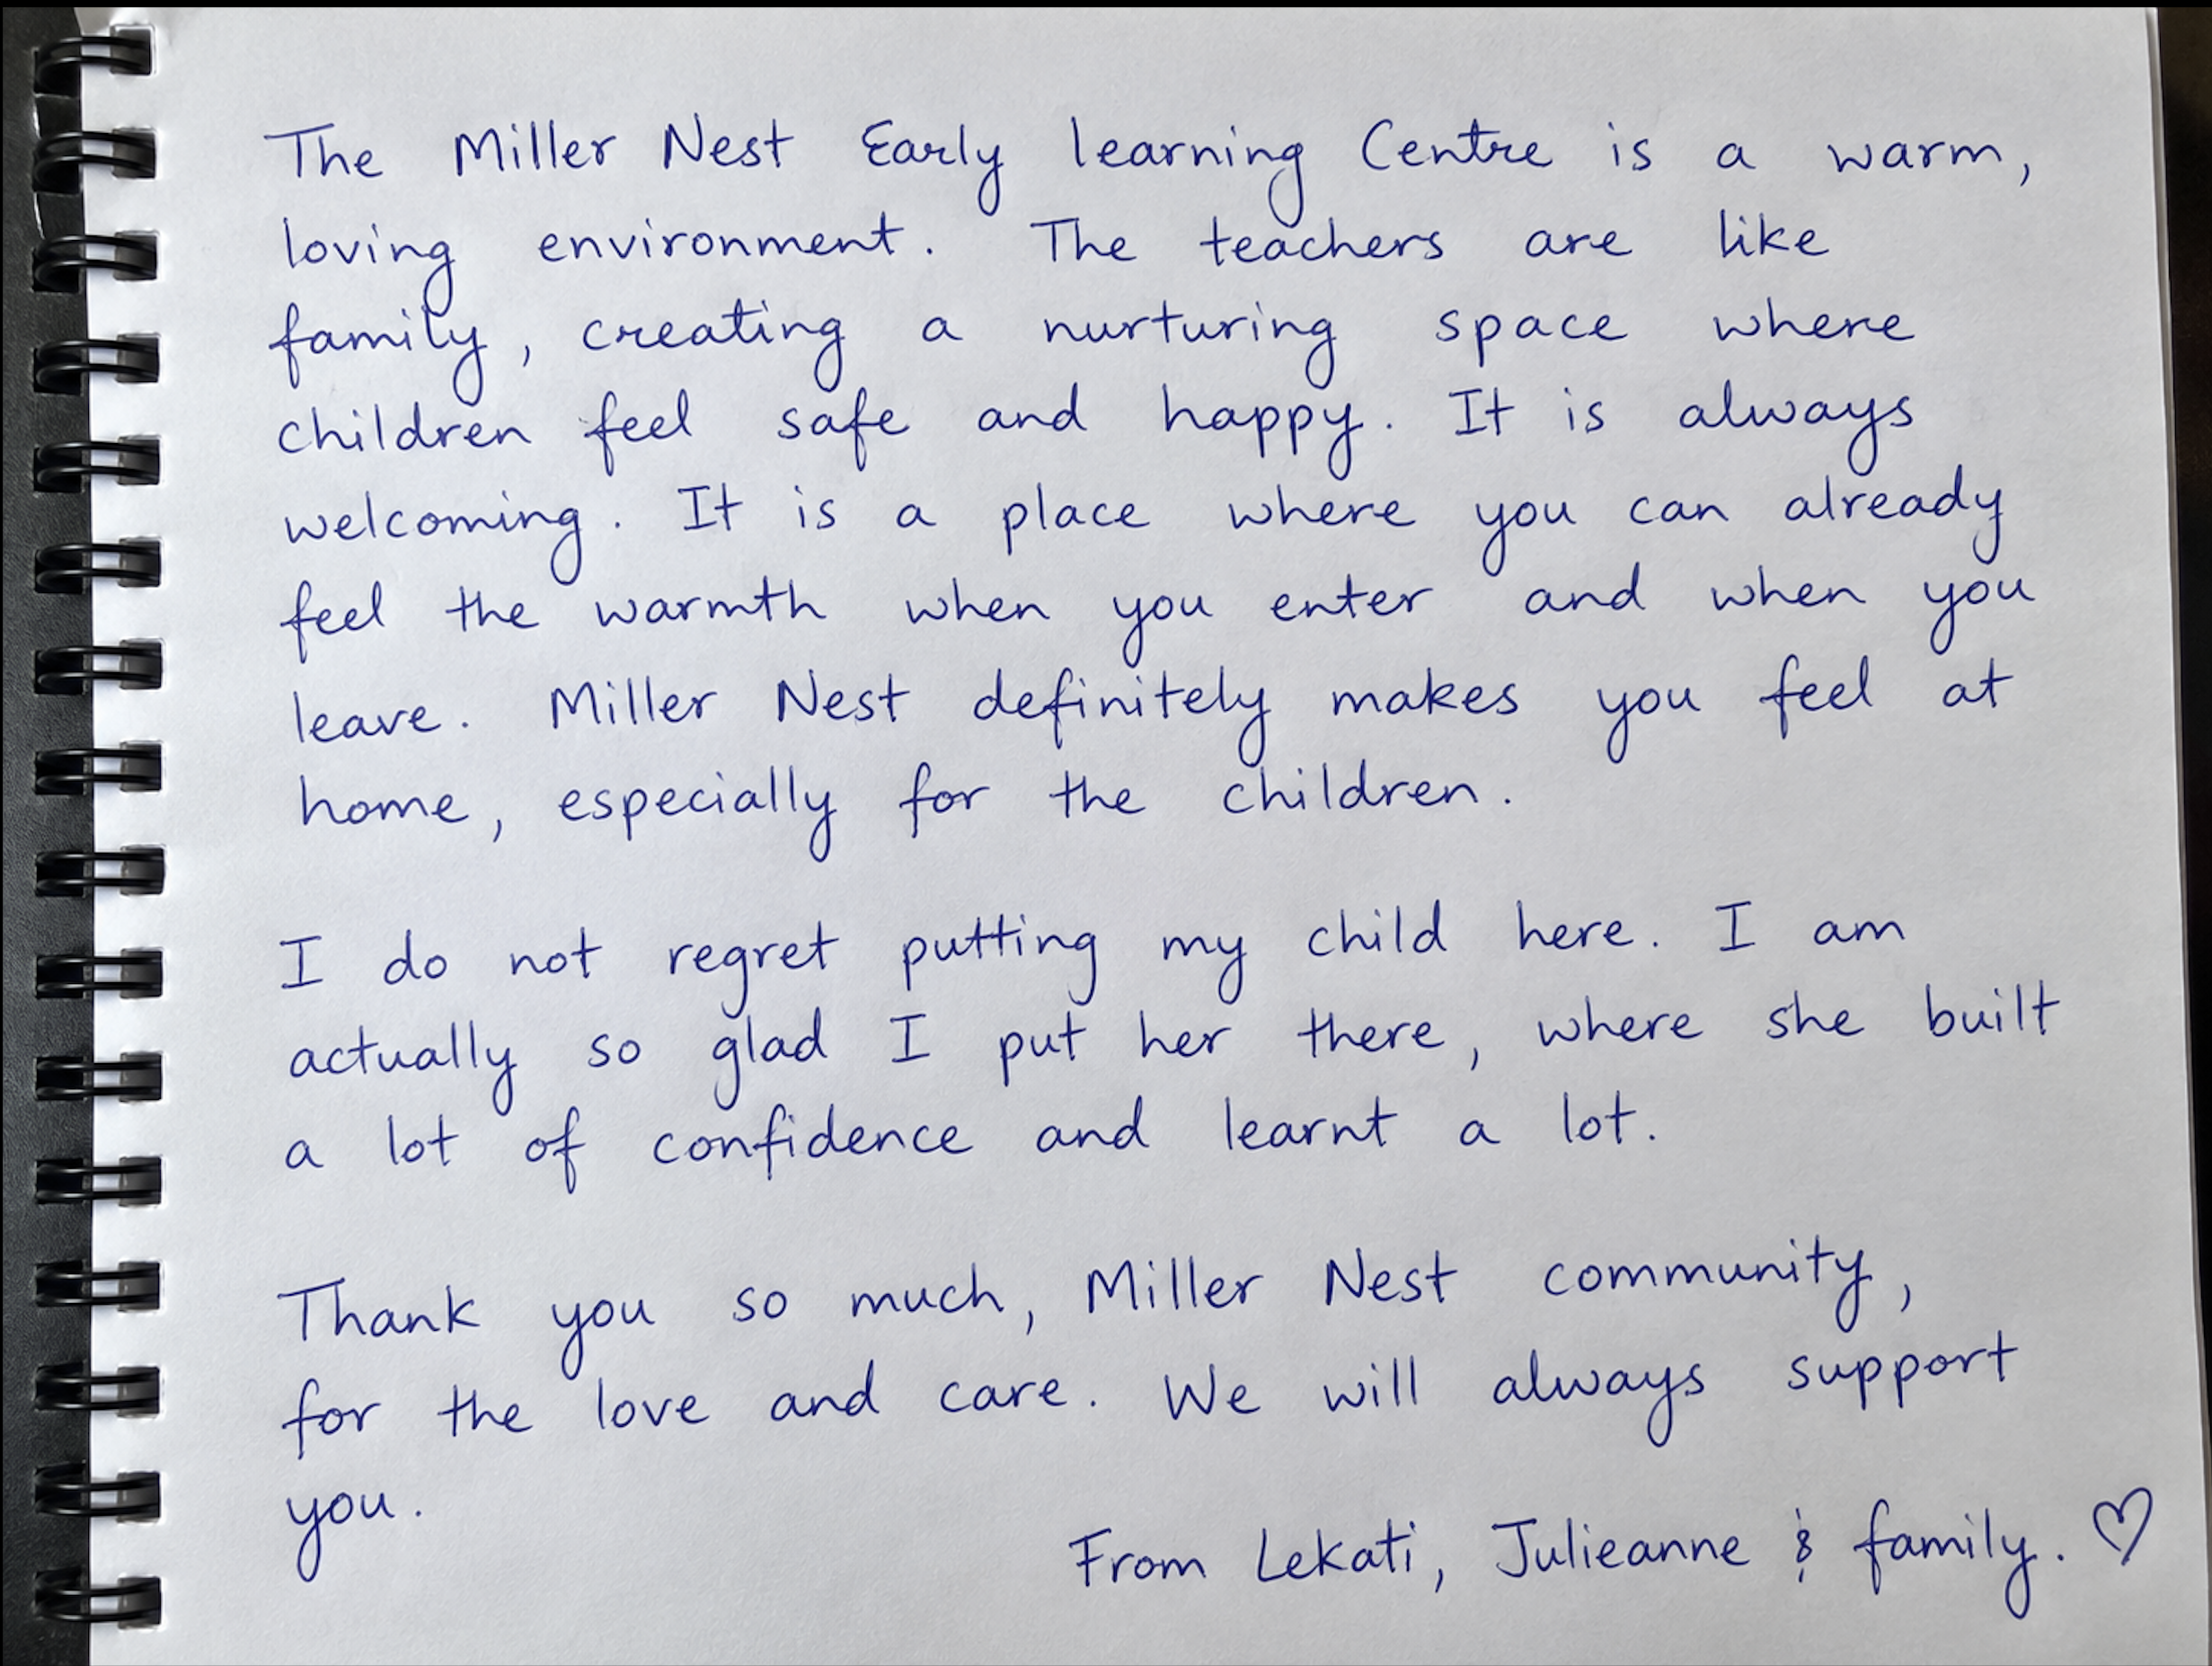 The Miller Nest Early learning Centre is a warm,
loving environment. The teachers are like
family, creating a nurturing space where
children feel safe and happy. It is always
welcoming. It is a place where you can already
feel the warmth when you enter and when you
leave. Miller Nest definitely makes you feel at
home, especially for the children.
I do not regret putting my child here. I am
actually so glad I put her there, where she built
a lot of confidence and learnt a lot.
Thank you so much, Miller Nest community,
for the love and care. We will always support
you.
From Lekati, Julieanne & family. ♡